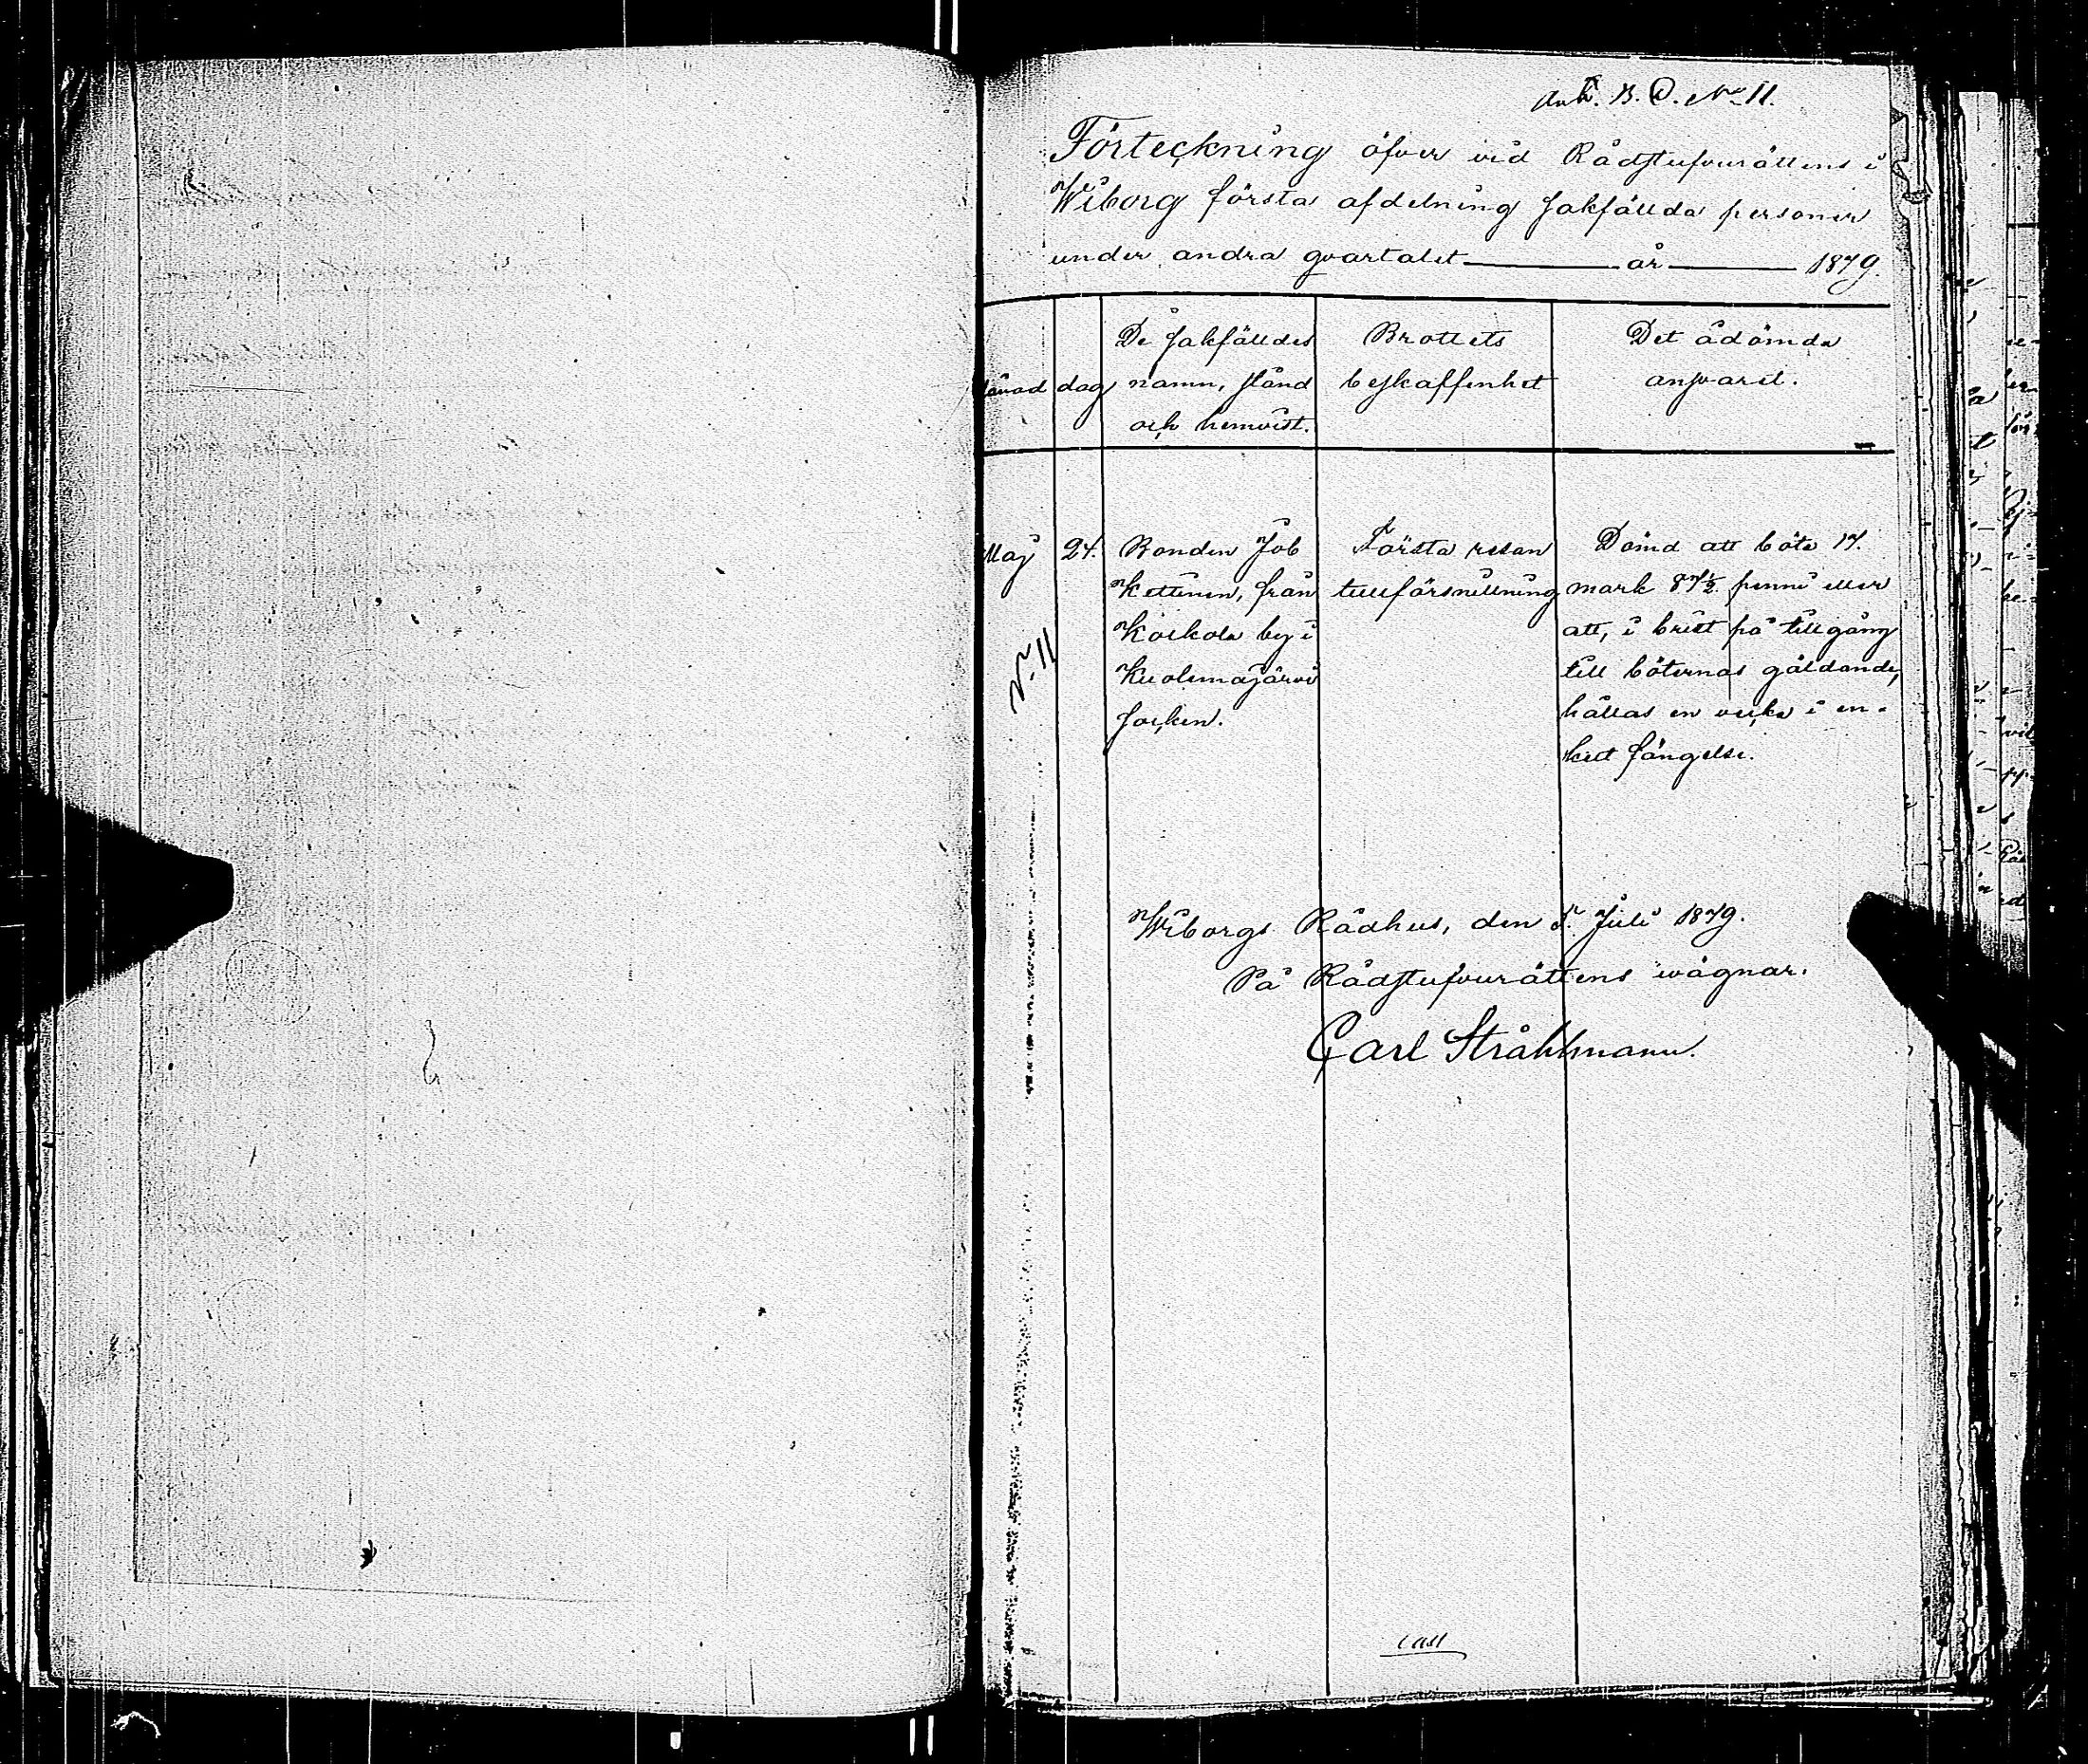 Ank. B. O. No 11.
Förteckning öfver vid Rådstufvurättens i
Wiborg första afdelning sakfällda personer
under andra qvartalet år 1879.
Månad dag De sakfälldes namn, stånd och hemvist. Brottets beskaffenhet Det ådömda ansvaret.
Maj 24. Bonden Job Första resan Dömd att böta 17.
Kettinen, från tillförsnillning mark 87½ penni eller
Koikola by i att, i brist på tillgång
Kuolemajärvi till böternas gäldande,
socken. hållas en vecka i en-
kelt fängelse.
No 11
Wiborgs Rådhus, den 5. Juli 1879.
På Rådstufvurättens wägnar.
Carl Stråhlmann.